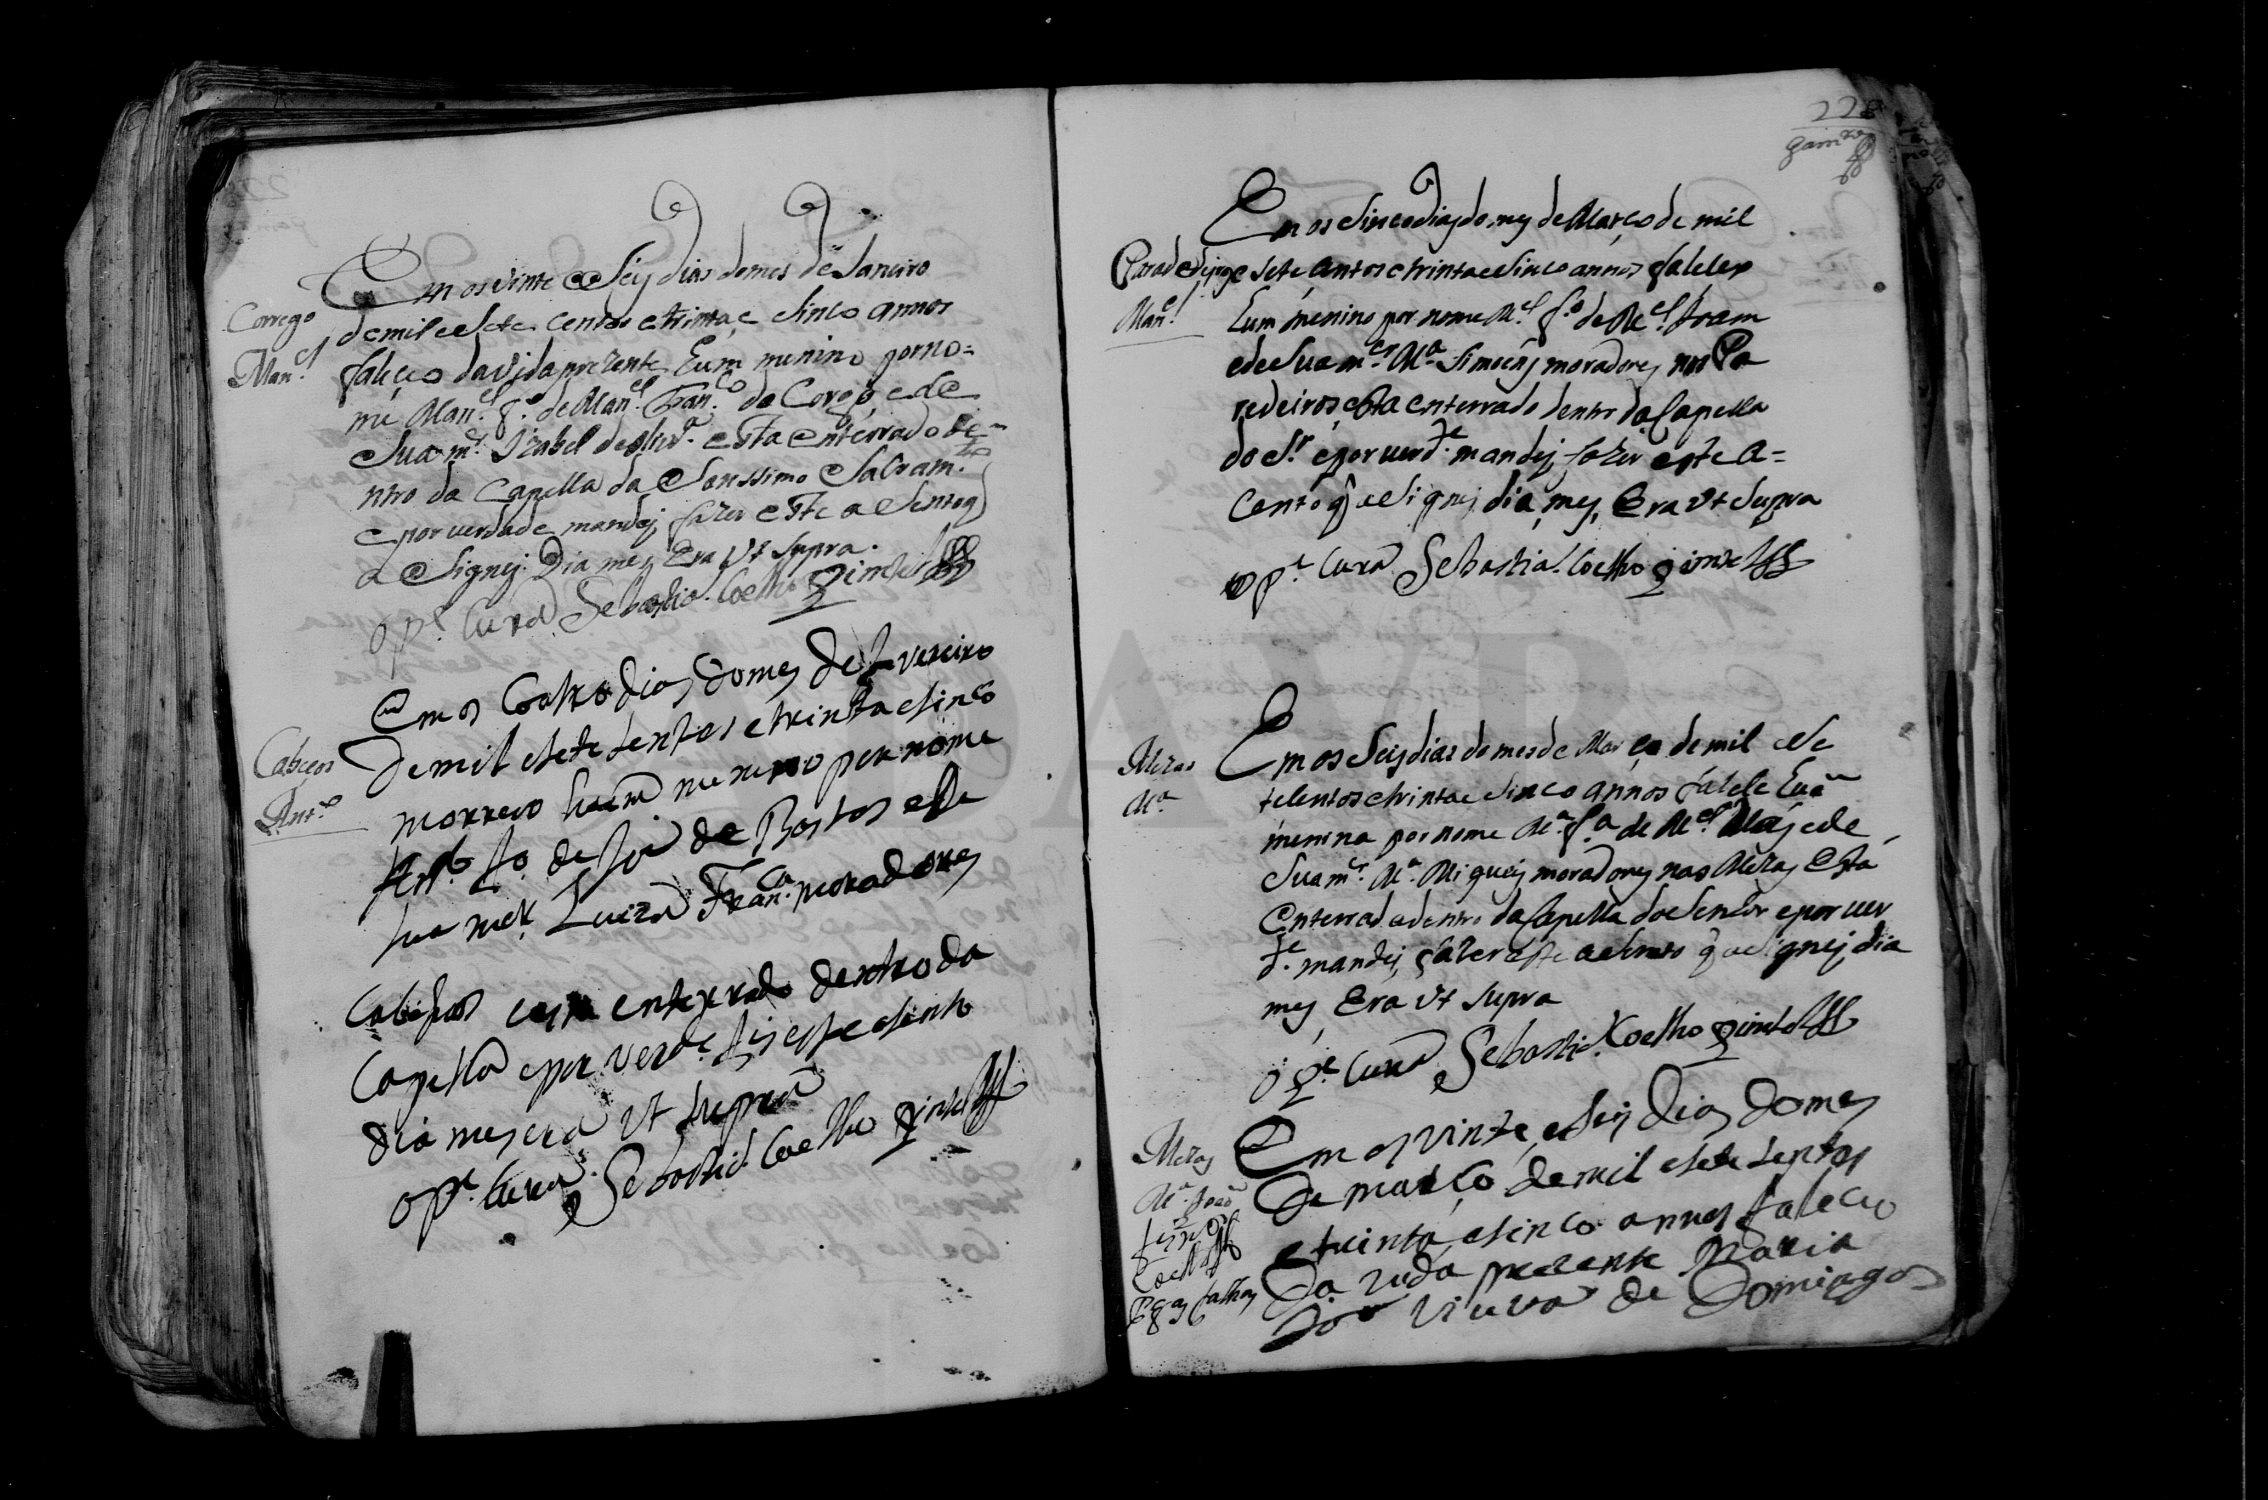 Corrego
Man.el
Em os vinte e Seis dias do mes de Janeiro
de mil e Sete centos e trinta e sinco annos
faleceo da vida prezente hum menino por no=
me Man.el f.o de Man.el Fran.co do Corego, e de
Sua m.er Izabel de olivr.a esta enterrado de=
ntro da Capella do Sanssimo Sacram.to
e por verdade mandej fazer este asento q
asignej. Dia mes Era Vt Supra.
o P.e Cura Sebastia. Coelho
Cabeços
Ant.o
Em os Coatro dias do mes de fevereiro
de mil e sete sentos e trinta e sinco
morreo hum menino per nome
f.o de de Bastos e de
sua mer Luiza Fran.ca moradores
Cabeços esta enterrado dentro da
Capella e por verd.e fis este asento
dia mes era Vt supra
o P.e Cura Sebastia. Coelho
228
Em os Sinco dias do mes de Março de mil
e Sete centos e trinta e Sinco annos faleceo
Man.el
hum menino por nome M.el f.o de M.el Joam
e de Sua m.er M.a Simoens moradores nos Pa
redeiros, esta enterrado dentro da Capella
do Sr e por verd.e mandej fazer este a=
cento q asignej dia, mes, Era Vt Supra
o P.e Cura Sebastia. Coelho
Mezas
M.a
Em os Seis dias do mes de Março de mil e Se
tecentos e trinta e Sinco annos falece hua
menina por nome M.a f.a de M.el e de
Sua m.er M.a Migueis moradores nas Mezas Está
enterrada dentro da Capella do Senhor e por ver
d.e mandej fazer este asento q asignej, dia
mes Era Vt Supra
o P.e Cura Sebastia. Coelho
Mezas
Em os vinte e seis Dias do mes
de março de mil e sete sentos
e trinta e sinco annos faleceo
da vida prezente Maria
viuva de Domingos